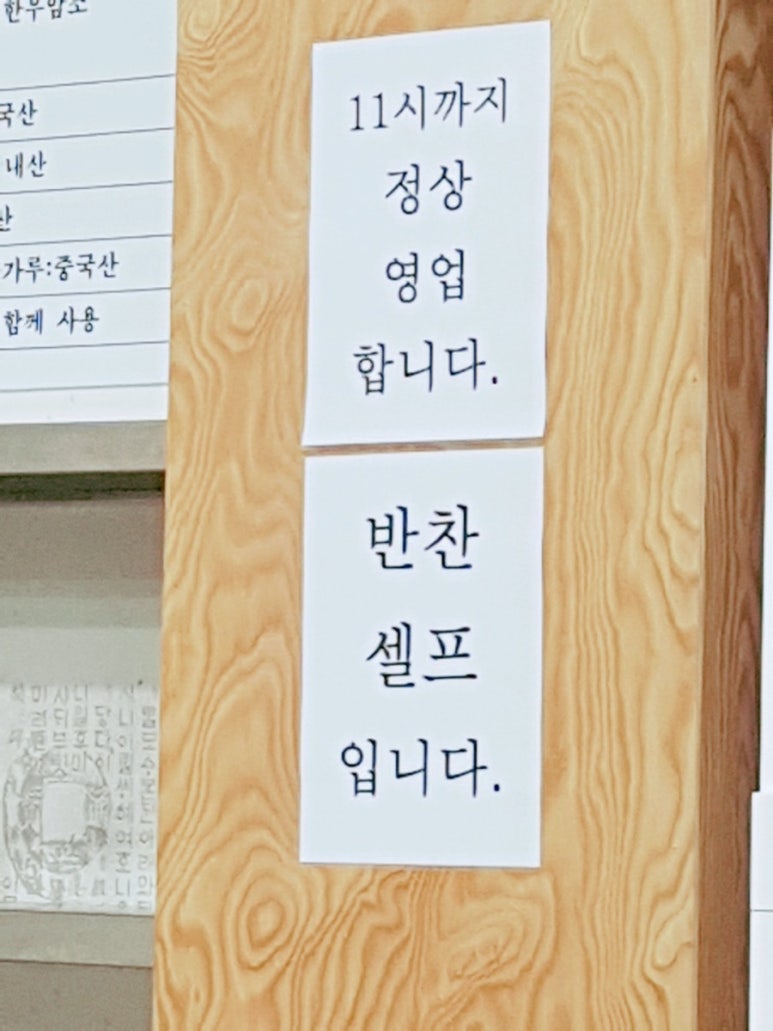 한우암소
국산
내산
산
가루:중국산
함께 사용
11시까지
정상
영업
합니다.
반찬
셀프
입니다.